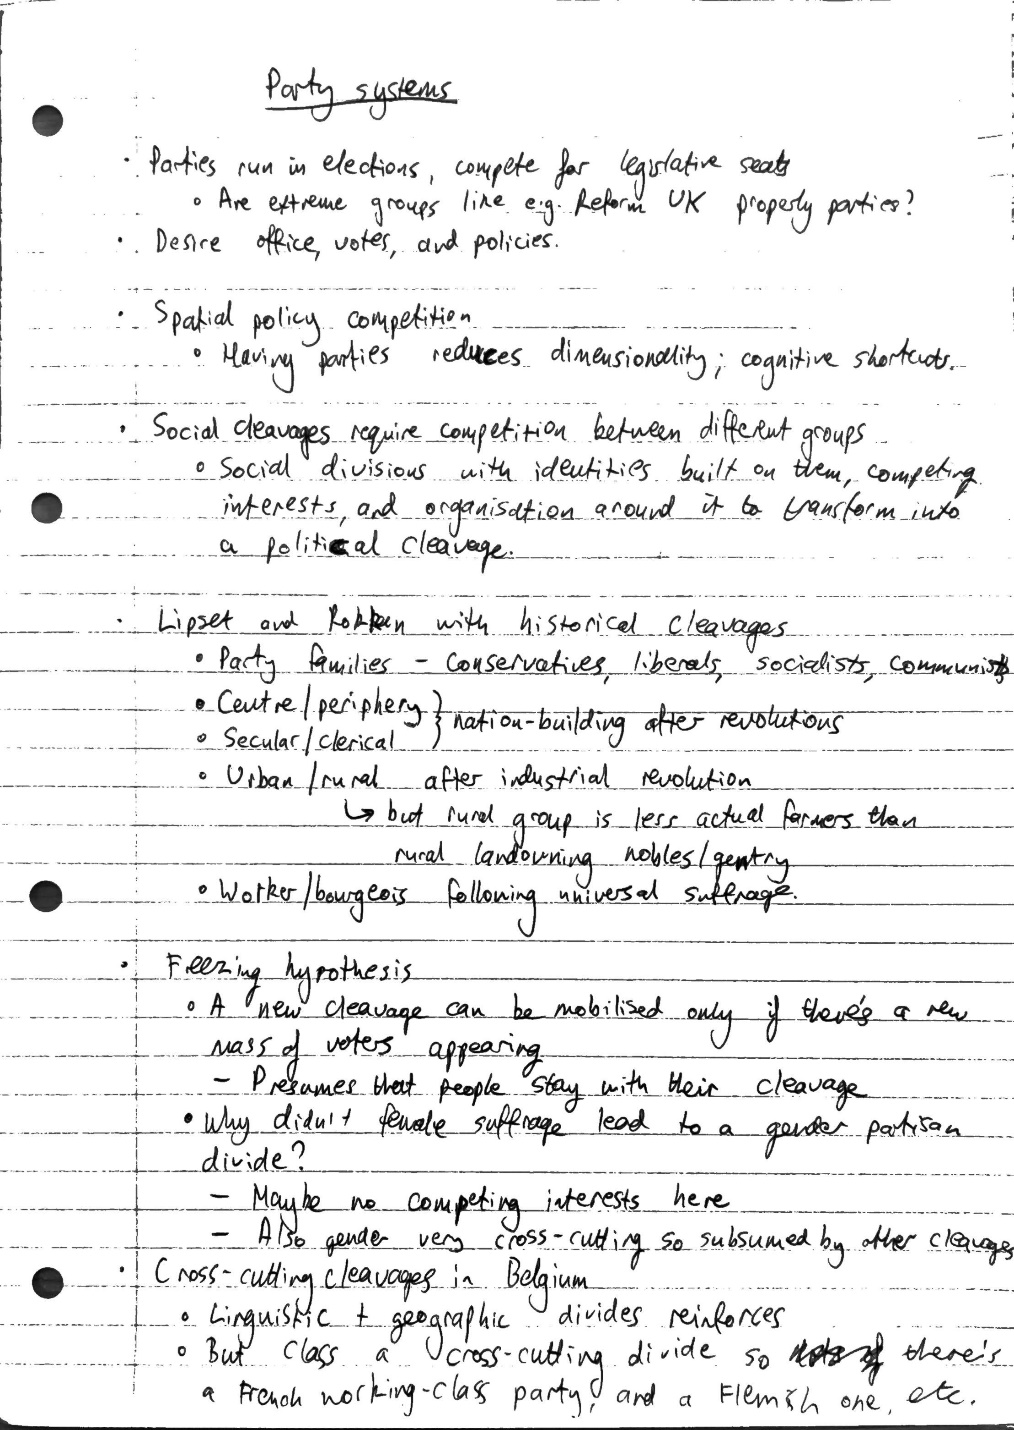 Party systems
· Parties run in elections, compete for legislative seats
∘ Are extreme groups like e.g. Reform UK properly parties?
· Desire office, votes, and policies.
· Spatial policy competition
∘ Having parties reduces dimensionality; cognitive shortcuts.
· Social cleavages require competition between different groups
∘ Social divisions with identities built on them, competing
interests, and organisation around it to transform into
a political cleavage.
· Lipset and Rokkan with historical cleavages
• Party families – conservatives, liberals, socialists, communists
• Centre/periphery } nation-building after revolutions
∘ Secular/clerical
∘ Urban/rural after industrial revolution
↳ but rural group is less actual farmers than
rural landowning nobles/gentry
∘ Worker/bourgeois following universal suffrage.
· Freezing hypothesis
∘ A new cleavage can be mobilised only if there's a new
mass of voters appearing
– Presumes that people stay with their cleavage
• Why didn't female suffrage lead to a gender partisan
divide?
– Maybe no competing interests here
– Also gender very cross-cutting so subsumed by other cleavages
· Cross-cutting cleavages in Belgium
∘ Linguistic + geographic divides reinforces
∘ But class a cross-cutting divide so there's
a French working-class party, and a Flemish one, etc.